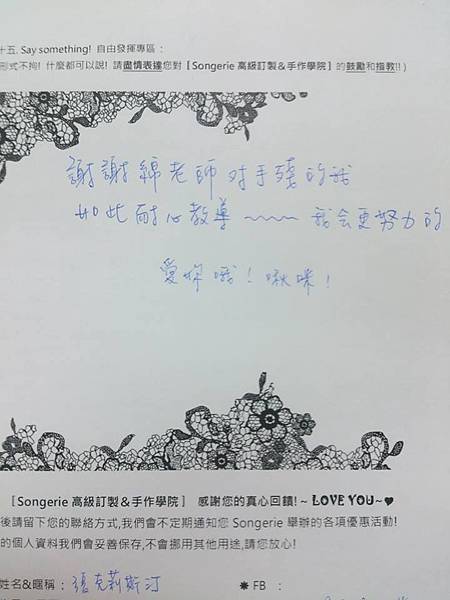 十五. Say something! 自由發揮專區：
形式不拘! 什麼都可以說! 請盡情表達您對【Songerie 高級訂製＆手作學院】的鼓勵和指教!!)
謝謝綿老師对手殘的我
如此耐心教導~~~ 我会更努力的
愛妳哦！啾咪！
【Songerie 高級訂製＆手作學院】 感謝您的真心回饋!~ LOVE YOU~♥
後請留下您的聯絡方式,我們會不定期通知您 Songerie 舉辦的各項優惠活動!
的個人資料我們會妥善保存,不會挪用其他用途,請您放心!
姓名&暱稱：張克莉斯汀 ✷ FB ：